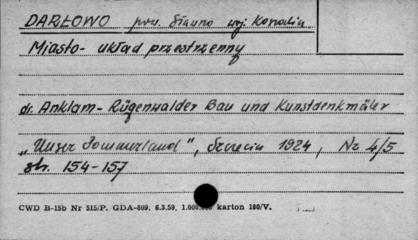 DARŁOWO pow. Sławno woj. Koszalin
Miasto- układ przestrzenny
dr. Anklam- Rügenwalder Bau und Kunstdenkmäler
„Unser Pommerland", Szczecin 1924, Nr 4/5
str. 154-157
CWD B-15b Nr 515/P. GDA-809. 6.3.59. 1.000.000 karton 180/V.